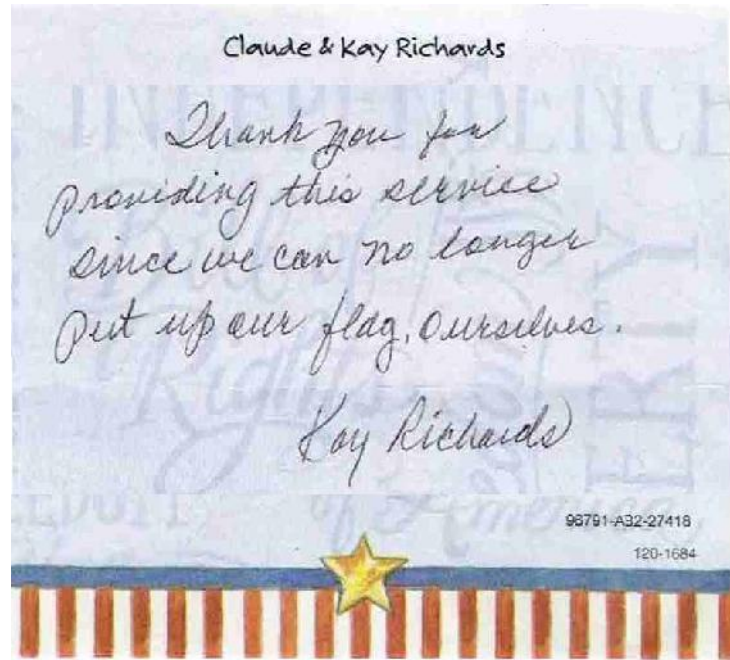 Claude & Kay Richards
INDEPENDENCE
Thank you for
providing this service
since we can no longer
put up our flag, ourselves.
Bill of
Rights
ERTY
Kay Richards
of America
98791-A32-27418
120-1684